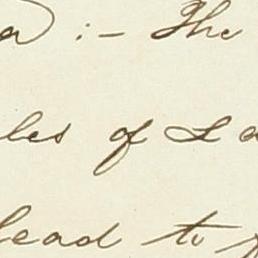 :- The
les of La
lead to